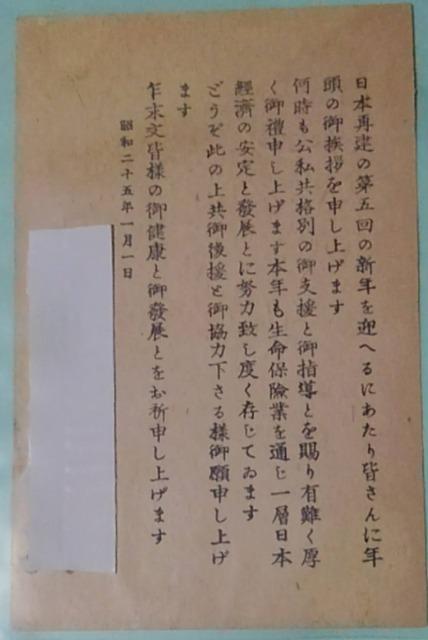 日本再建の第五回の新年を迎へるにあたり皆さんに年
頭の御挨拶を申し上げます
何時も公私共格別の御支援と御指導とを賜り有難く厚
く御禮申し上げます本年も生命保險業を通じ一層日本
經濟の安定と發展とに努力致し度く存じてゐます
どうぞ此の上共御後援と御協力下さる様御願申し上げ
ます
乍末文皆様の御健康と御發展とをお祈申し上げます
昭和二十五年一月一日